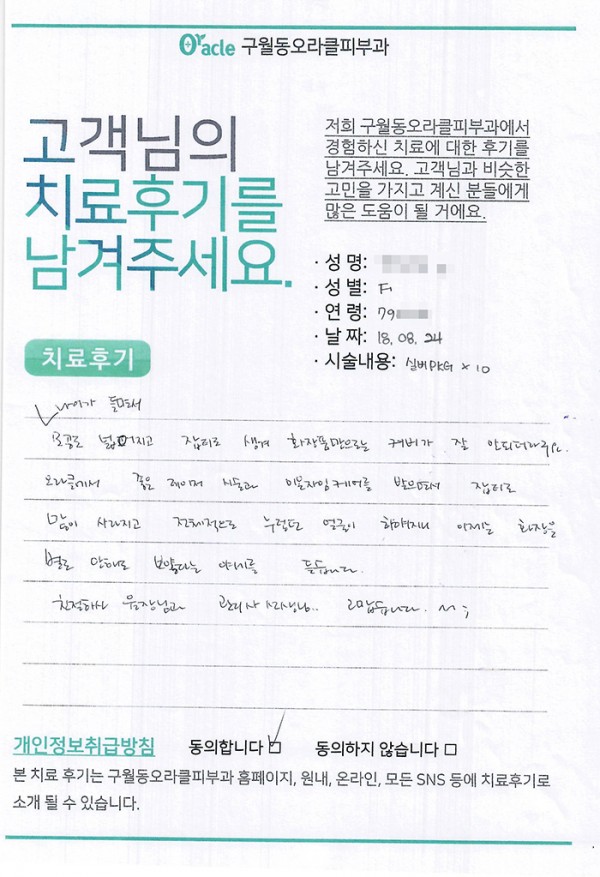 Oracle 구월동오라클피부과
고객님의
치료후기를
남겨주세요.
저희 구월동오라클피부과에서
경험하신 치료에 대한 후기를
남겨주세요. 고객님과 비슷한
고민을 가지고 계신 분들에게
많은 도움이 될 거에요.
· 성 명:
· 성 별: F
· 연 령: 79
· 날 짜: 18. 08. 24
· 시술내용: 실버PKG × 10
치료후기
나이가 들면서
모공도 넓어지고 잡티도 생겨 화장품만으로는 커버가 잘 안되더라구요.
오라클에서 꽃은 레이저 시술과 이온자임케어를 받으면서 잡티도
많이 사라지고 전체적으로 누렇던 얼굴이 하얘지니 이제는 화장을
별로 안해도 뽀얗다는 얘기를 듣습니다.
친절하신 원장님과 관리사 선생님.. 고맙습니다. ~ ;
개인정보취급방침 동의합니다 동의하지 않습니다
본 치료 후기는 구월동오라클피부과 홈페이지, 원내, 온라인, 모든 SNS 등에 치료후기로
소개 될 수 있습니다.